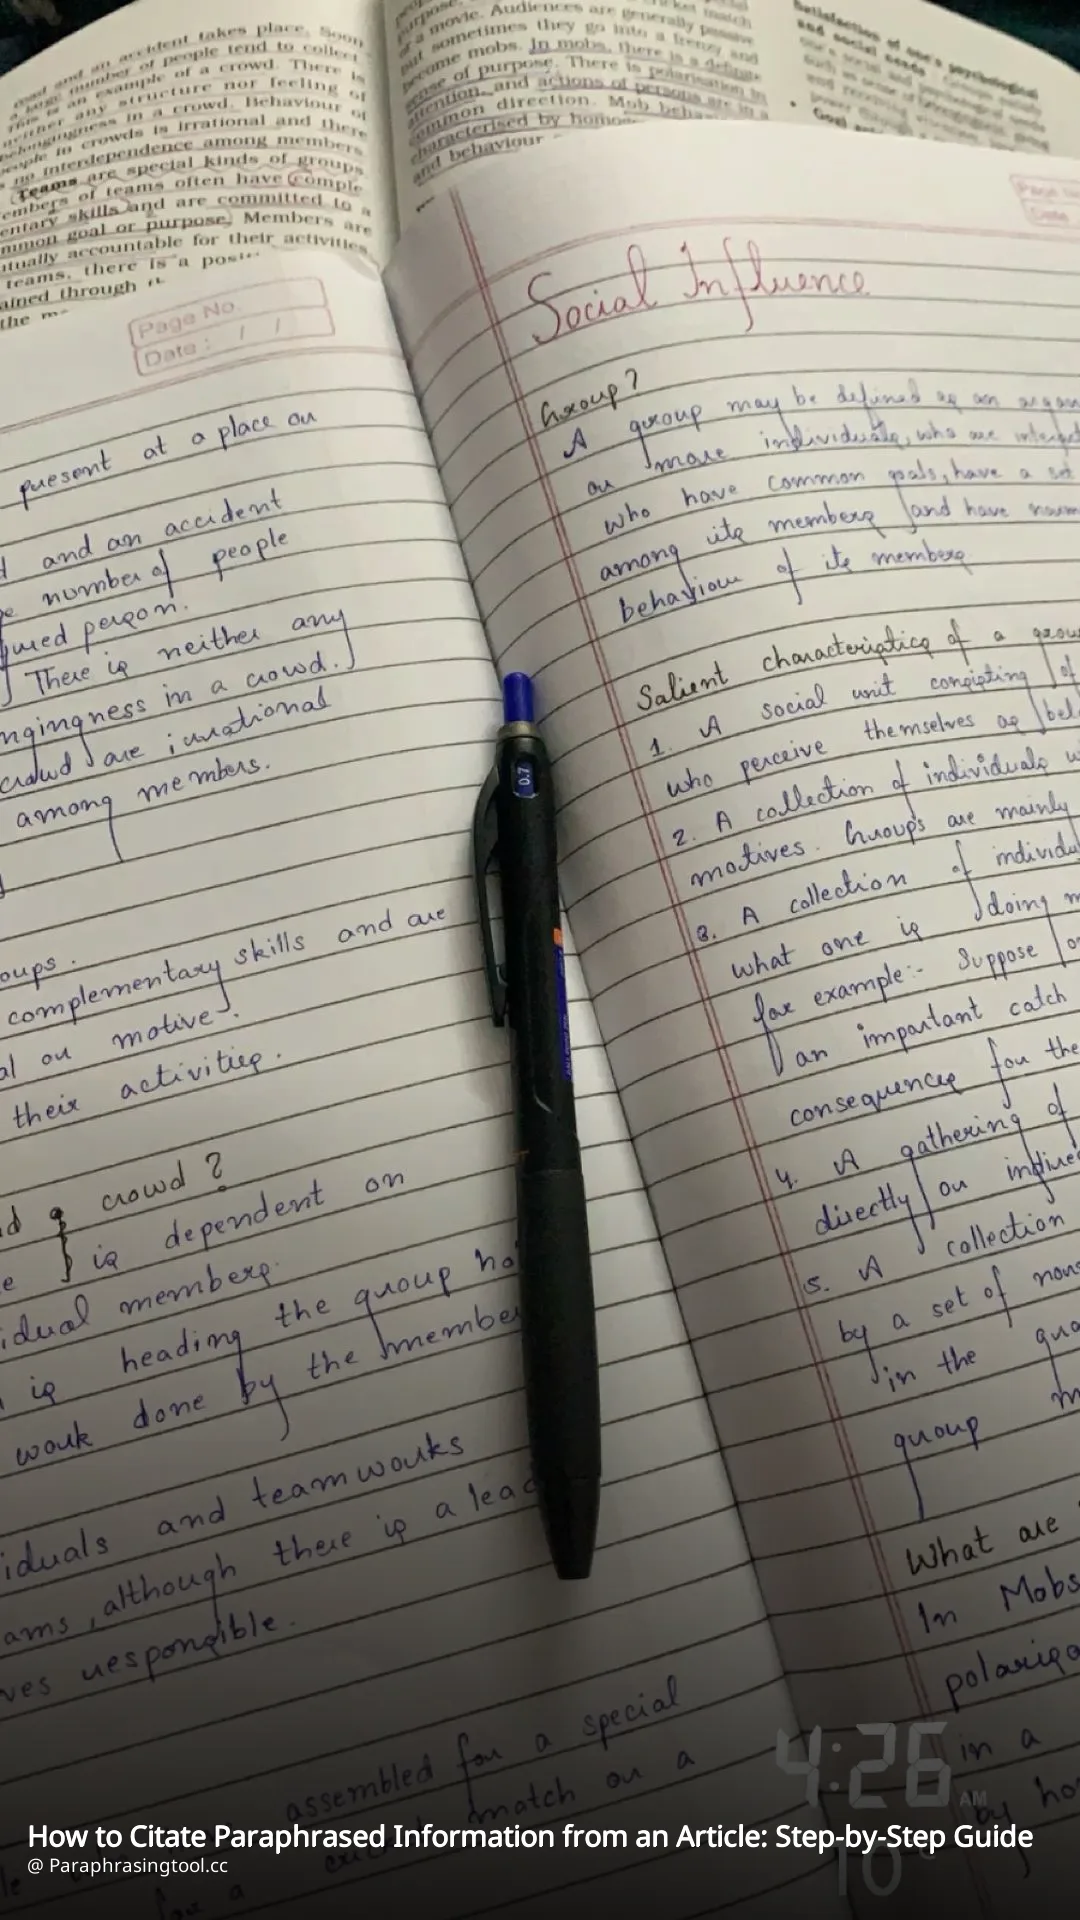 road and an accident takes place. Soon
a large number of people tend to collect.
This is an example of a crowd. There is
neither any structure nor feeling of
belongingness in a crowd. Behaviour of
people in crowds is irrational and there
is no interdependence among members
Teams are special kinds of groups
members of teams often have comple
entary skills and are committed to a
mmon goal or purpose. Members are
utually accountable for their activities
teams, there is a
ained through
the
of a movie. Audiences are generally passive
but sometimes they go into a frenzy and
become mobs. In mobs, there is a definite
sense of purpose. There is polarisation in
attention, and actions of persons are in a
common direction. Mob
characterised by
and behaviour
Satisfaction of one's psychological
and social needs
Page No.
Date : / /
present at a place or
and an accident
number of people
person.
There is neither any
ngingness in a crowd.
crowd are irrational
among members.
oups.
complementary skills and are
al or motive.
their activities.
crowd ?
is dependent on
idual members.
is heading the group
work done by the
iduals and team works
ams, although there is a
ves responsible.
assembled for a special
match or a
for a
Page
Date
Social Influence
Group?
A group may be defined as an
or more individuals, who are
who have common goals, have a set
among its members and have
behaviour of its members.
Salient characteristics of a
1. A social unit consisting of
who perceive themselves as
2. A collection of individuals
motives. Groups are mainly
3. A collection of
what one is doing
for example:- Suppose
an important catch
consequences for the
4. A gathering of
directly or
5. A collection
by a set of
in the
group
What are
In Mobs
in a
by
0.7
4:26 AM
10°
How to Citate Paraphrased Information from an Article: Step-by-Step Guide
@ Paraphrasingtool.cc